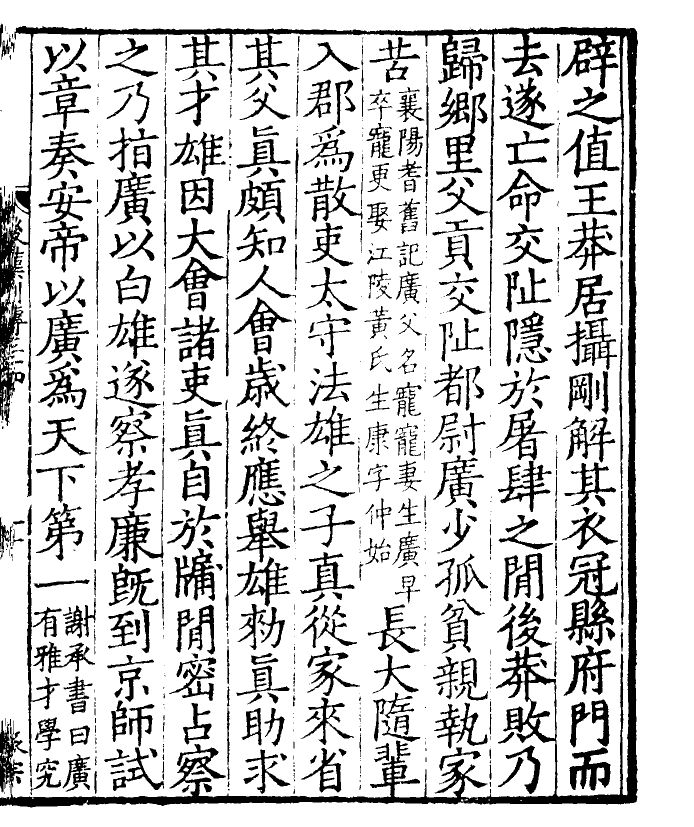 辟之值王莽居攝剛解其衣冠縣府門而
去遂亡命交阯隱於屠肆之閒後莽敗乃
歸鄉里父貢交阯都尉廣少孤貧親執家
苦襄陽耆舊記廣父名寵寵妻生廣早
卒寵更娶江陵黃氏生康字仲始長大隨輩
入郡爲散吏太守法雄之子真從家來省
其父眞頗知人會歳終應舉雄勑眞助求
其才雄因大會諸吏眞自於牖閒密占察
之乃指廣以白雄遂察孝廉旣到京師試
以章奏安帝以廣爲天下第一謝承書曰廣
有雅才學究